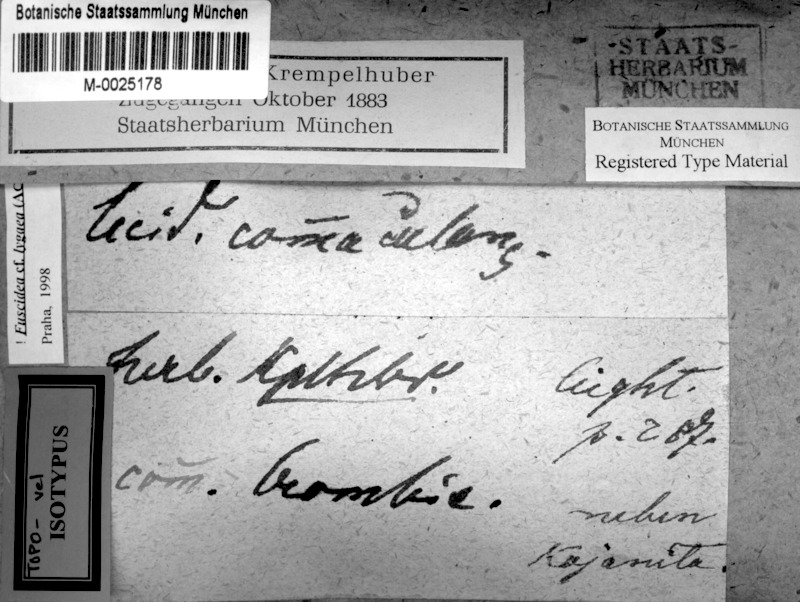 Botanische Staatssammlung München
M-0025178
Krempelhuber
Zugegangen Oktober 1883
Staatsherbarium München
STAATS-
HERBARIUM
MÜNCHEN
BOTANISCHE STAATSSAMMLUNG
MÜNCHEN
Registered Type Material
! Fuscidea cf. lygaea (AC
Praha, 1998
Lecid.
herb. Kplhbr.
Leight.
p. 287.
com̄. Crombie.
neben
Kajanita.
TOPO- vel
ISOTYPUS